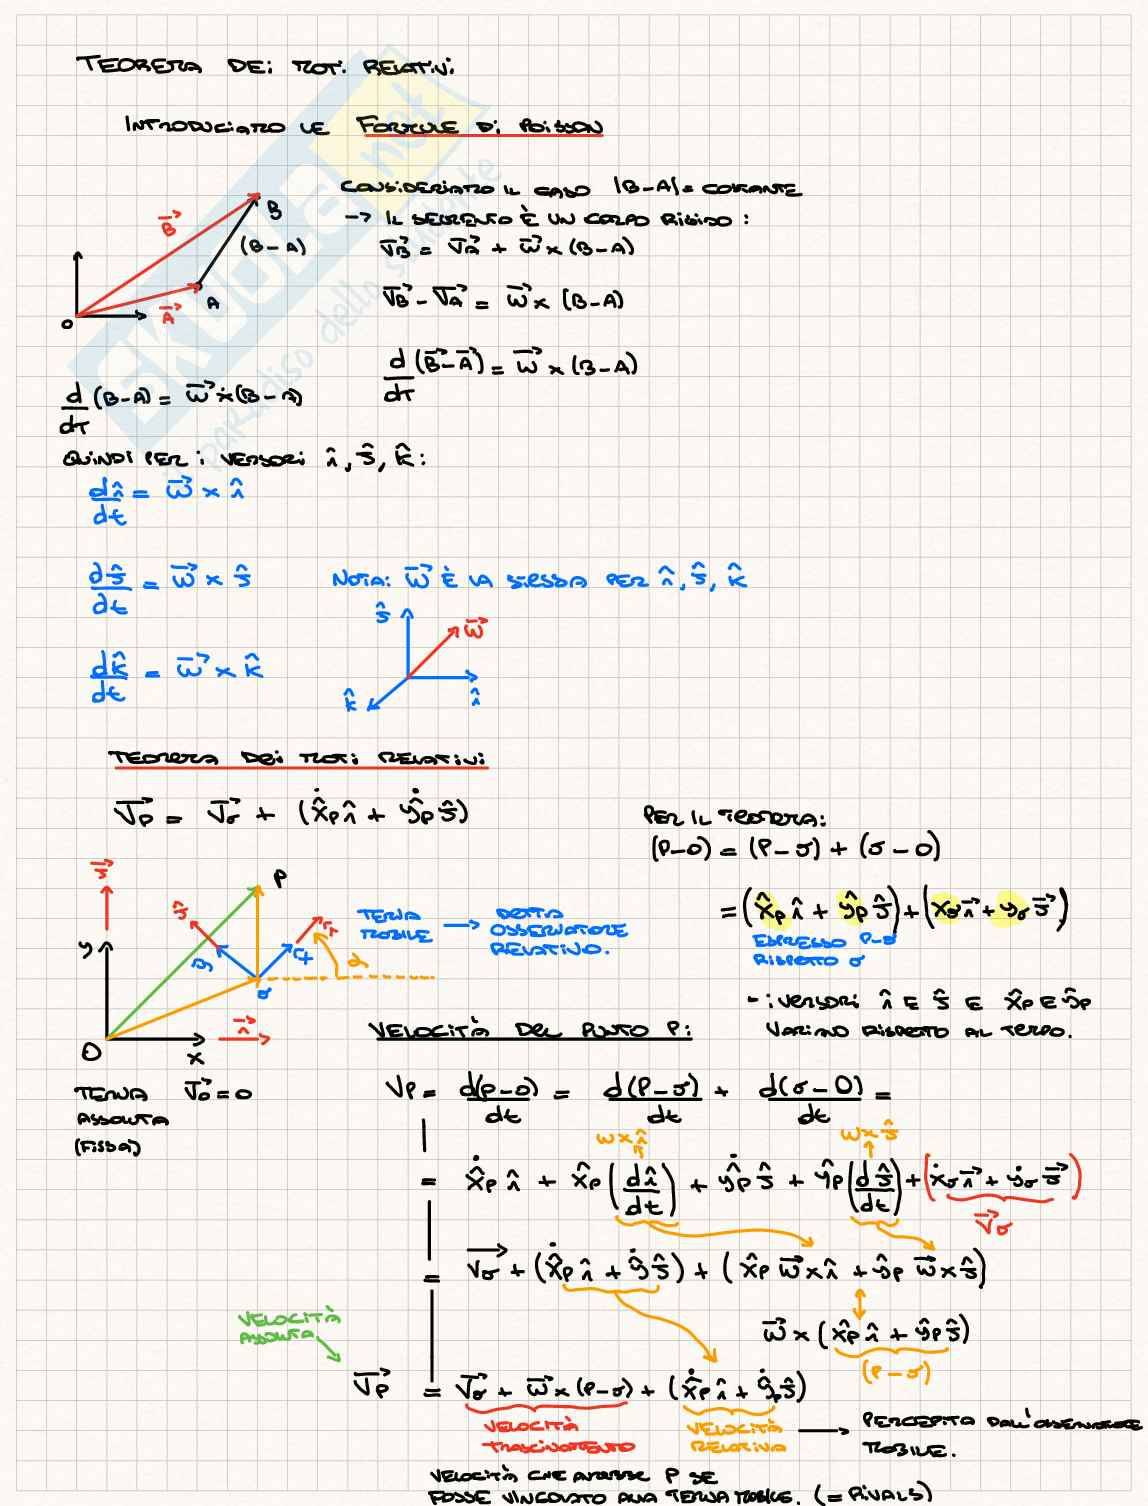 TEOREMA DEI MOTI RELATIVI
INTRODUCIAMO LE FORMULE DI POISSON
CONSIDERIAMO IL CASO |B-A| = COSTANTE
→ IL SEGMENTO È UN CORPO RIGIDO:
V⃗B = V⃗A + ω⃗ × (B-A)
V⃗B - V⃗A = ω⃗ × (B-A)
d/dt (B⃗-A⃗) = ω⃗ × (B-A)
B⃗
B
(B-A)
A
A⃗
O
d/dt (B-A) = ω⃗ × (B-A)
QUINDI PER I VERSORI î, ĵ, k̂:
dî/dt = ω⃗ × î
dĵ/dt = ω⃗ × ĵ
NOTA: ω⃗ È LA STESSA PER î, ĵ, k̂
dk̂/dt = ω⃗ × k̂
ĵ
ω⃗
k̂
î
TEOREMA DEI MOTI RELATIVI
V⃗P = V⃗σ + (ẋ̂P î + ẏ̂P ĵ)
PER IL TEOREMA:
(P-O) = (P-σ) + (σ-O)
= (x̂P î + ŷP ĵ) + (xσ i⃗ + yσ j⃗)
ESPRESSO P-σ
RISPETTO σ
- I VERSORI î E ĵ E x̂P E ŷP
VARIANO RISPETTO AL TEMPO.
j⃗
P
ĵ
î
y
ŷ
x̂
α
σ
O
x
i⃗
TERNA
MOBILE → DETTA
OSSERVATORE
RELATIVO.
TERNA V⃗o = 0
ASSOLUTA
(FISSA)
VELOCITÀ DEL PUNTO P:
VP = d(P-O)/dt = d(P-σ)/dt + d(σ-O)/dt =
ω×î ω×ĵ
= ẋ̂P î + x̂P (dî/dt) + ẏ̂P ĵ + ŷP (dĵ/dt) + (ẋσ i⃗ + ẏσ j⃗)
V⃗σ
= V⃗σ + (ẋ̂P î + ẏ̂ ĵ) + (x̂P ω⃗×î + ŷP ω⃗×ĵ)
ω⃗ × (x̂P î + ŷP ĵ)
(P-σ)
VELOCITÀ
ASSOLUTA
V⃗P = V⃗σ + ω⃗ × (P-σ) + (ẋ̂P î + ẏ̂P ĵ)
VELOCITÀ
TRASCINAMENTO
VELOCITÀ
RELATIVA → PERCEPITA DALL'OSSERVATORE
MOBILE.
VELOCITÀ CHE AVREBBE P SE
FOSSE VINCOLATO ALLA TERNA MOBILE. (= RIVALS)
SKUOLA.net
il paradiso dello studente